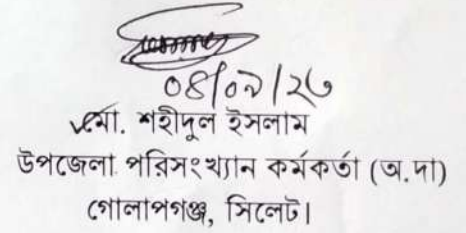 ০৪/০৯/২৩
মো. শহীদুল ইসলাম
উপজেলা পরিসংখ্যান কর্মকর্তা (অ.দা)
গোলাপগঞ্জ, সিলেট।